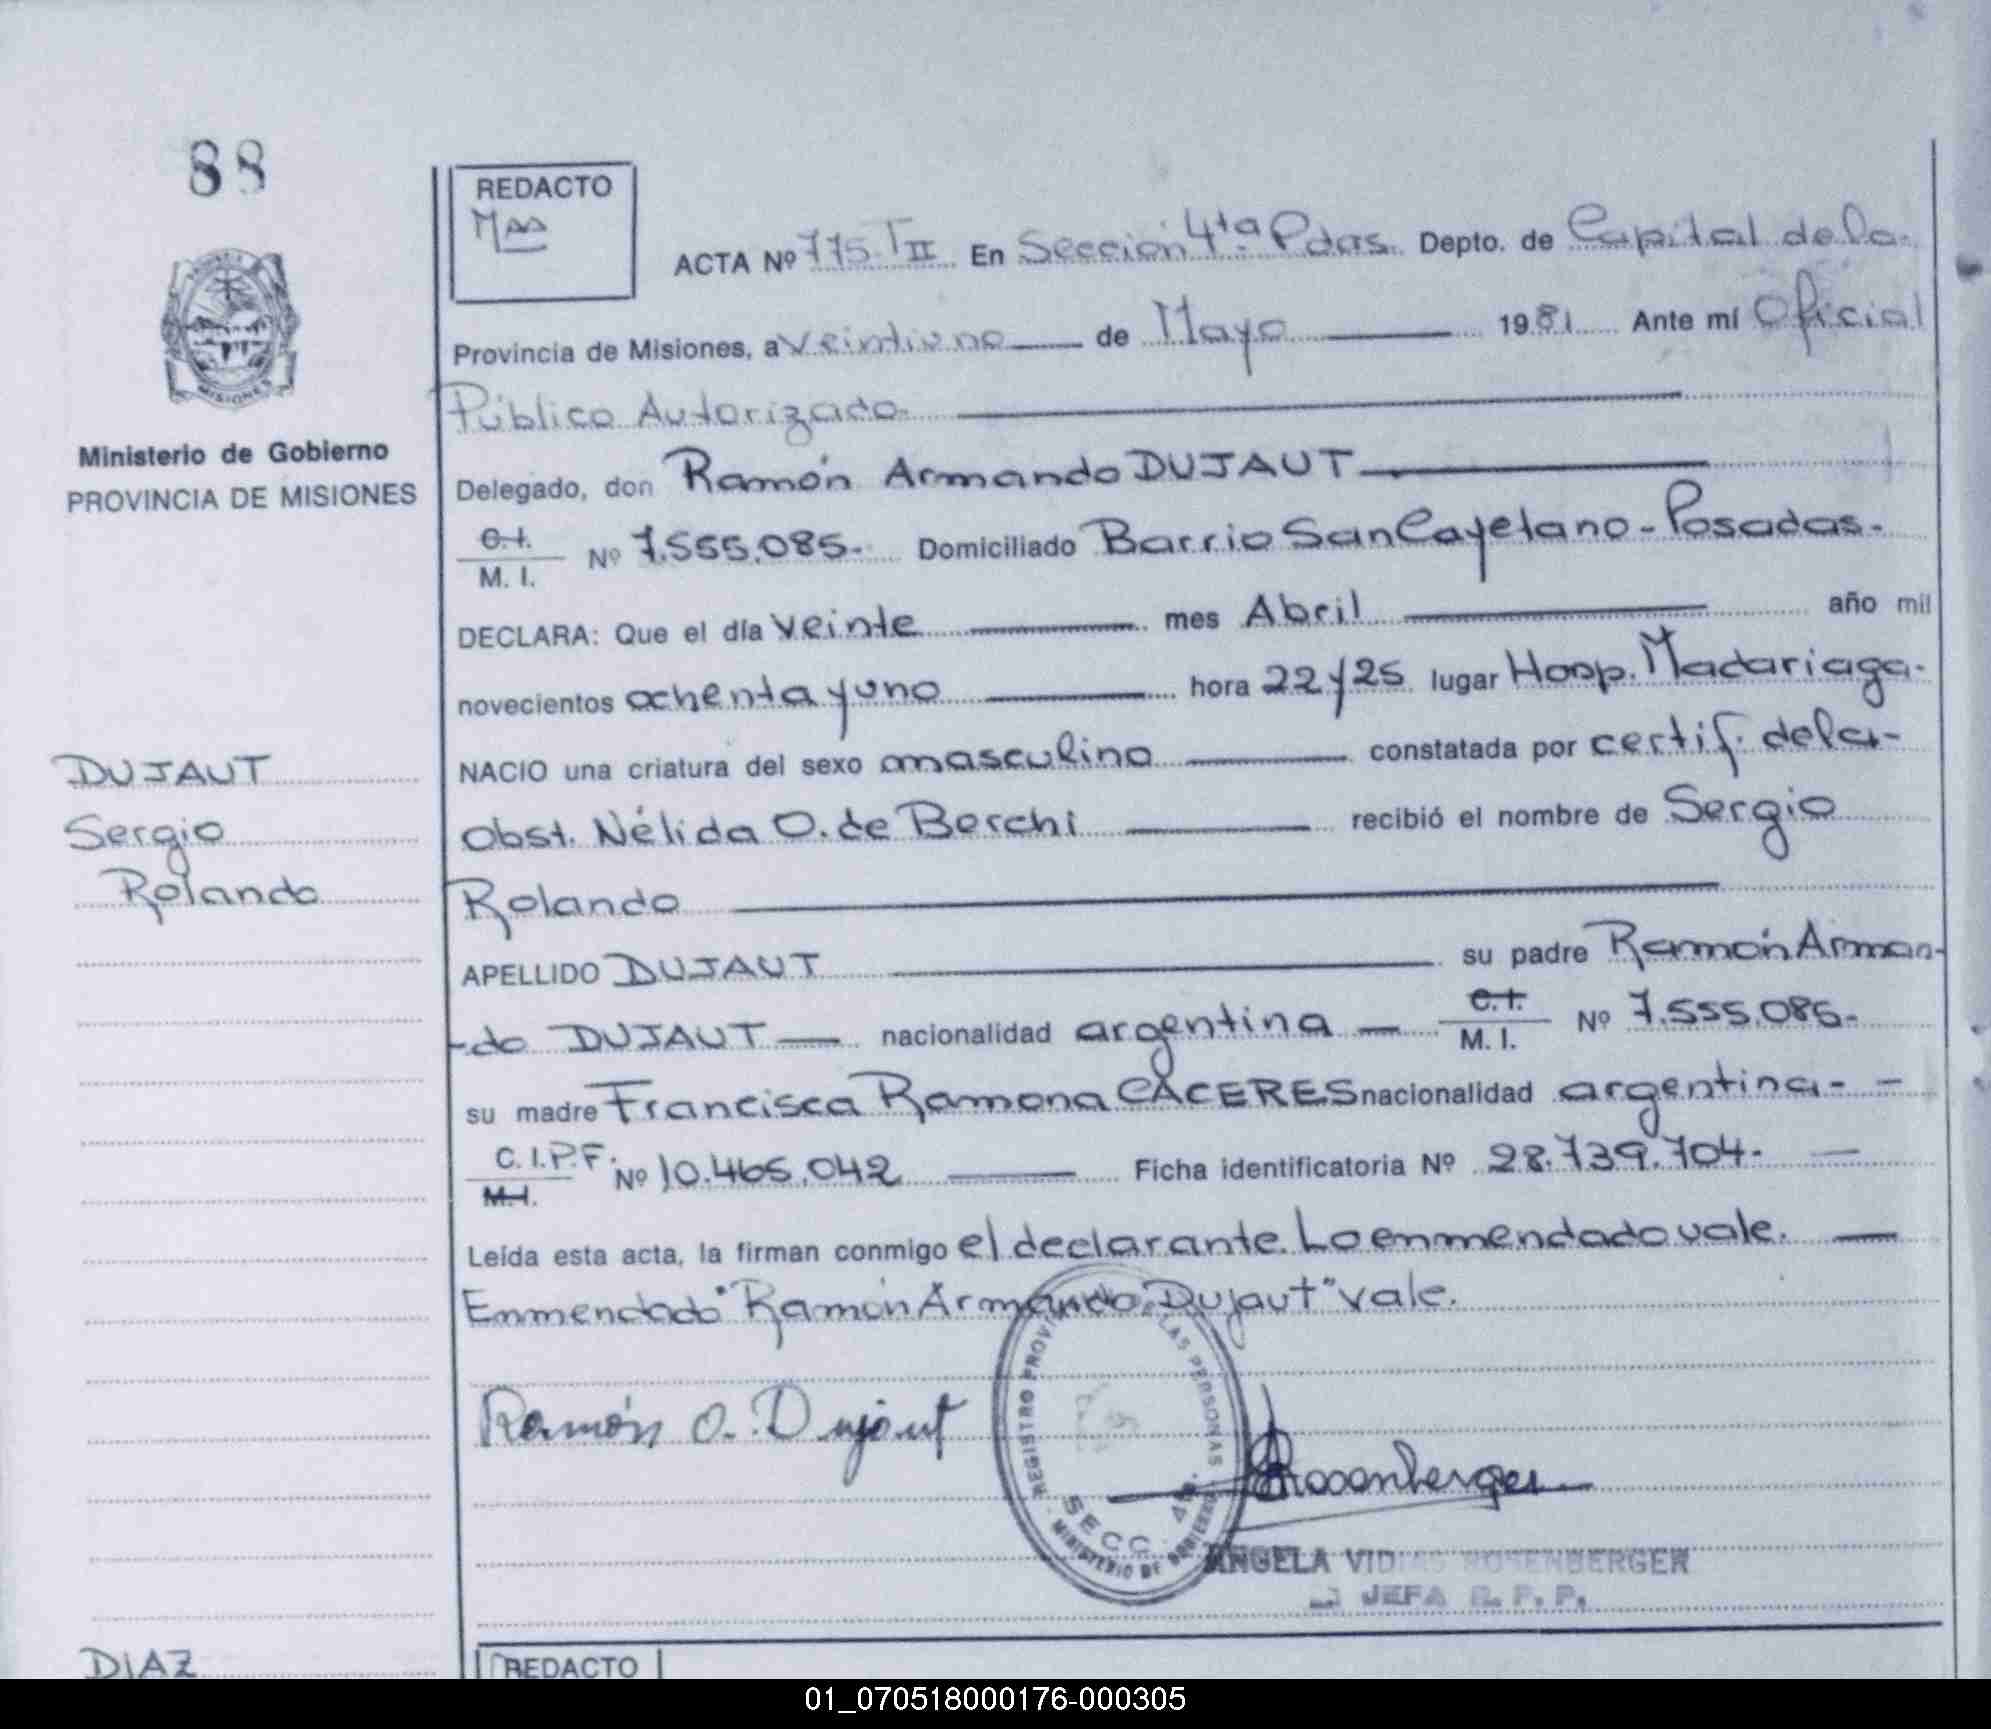 88
REDACTO
Maa
ACTA Nº 775 TII En Sección 4ta Pdas. Depto. de Capital de la
Provincia de Misiones, a veintiuno de Mayo 1981 Ante mí Oficial
Público Autorizado
Ministerio de Gobierno
PROVINCIA DE MISIONES
Delegado, don Ramón Armando DUJAUT
C.I.
M. I. Nº 7.555.085. Domiciliado Barrio San Cayetano - Posadas.
DECLARA: Que el día veinte mes Abril año mil
novecientos ochenta y uno hora 22 y 25 lugar Hosp. Madariaga.
DUJAUT
Sergio
Rolando
NACIO una criatura del sexo masculino constatada por certif. de la
Obst. Nélida O. de Berchi recibió el nombre de Sergio
Rolando
APELLIDO DUJAUT su padre Ramón Arman-
-do DUJAUT nacionalidad argentina C.I. M. I. Nº 7.555.085.
su madre Francisca Ramona CÁCERES nacionalidad argentina - -
C. I.P.F. M.I. Nº 10.465.042 Ficha identificatoria Nº 28.739.704.
Leída esta acta, la firman conmigo el declarante. Lo enmendado vale.
Enmendado "Ramón Armando Dujaut" vale.
Ramón O. Dujaut
REGISTRO PROVI LAS PERSONAS
SECC. 4ta.
MINISTERIO DE GOBIERNO
Rosenberger
ANGELA VIDI ROSENBERGER
JEFA R. P. P.
DIAZ
REDACTO
01_070518000176-000305